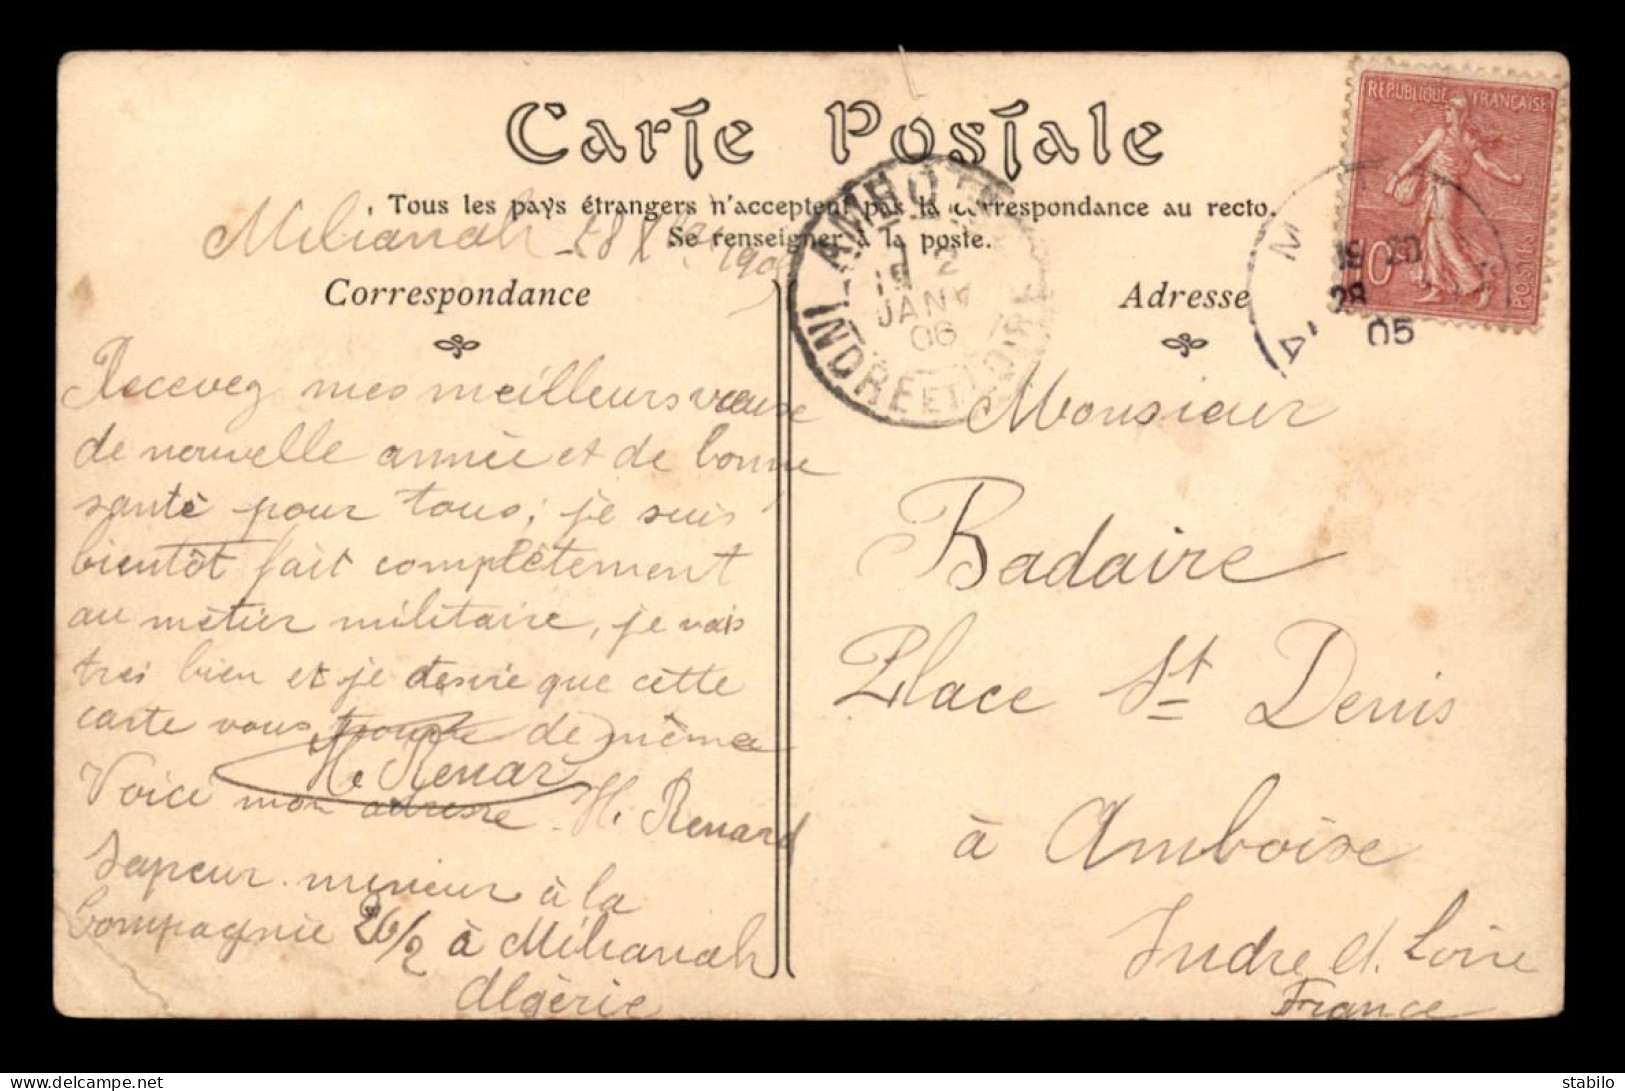 Carte Postale
Tous les pays étrangers n'acceptent pas la correspondance au recto.
Se renseigner à la poste.
Milianah 28 Xbre 1905
Correspondance
Recevez mes meilleurs vœuse
de nouvelle année et de bonne
santé pour tous; je suis
bientôt fait complètement
au métier militaire, je vais
très bien et je desire que cette
carte vous trouve de même
H. Renar
Voice mon adresse H. Renard
Sapeur mineur à la
Compagnie 26/2 à Milianah
Algérie
Adresse
Monsieur
Badaire
Place St Denis
à Amboise
Indre et. Loire
France
REPUBLIQUE FRANÇAISE
10
POSTES
19 20
28
05
AMBOISE
2
19
JANV
06
INDRE ET LOIRE
delcampe.net
stabilo